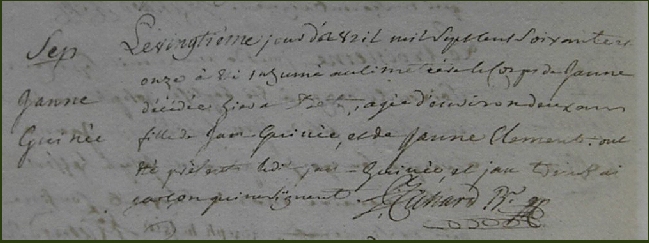 Sep
Janne
Guinée
Le vingtième jour d'avril mil sept cent soixante et
onze a été inhumé au cimetiere le Corps de Janne
décédée , agée d'environ deux ans
fille de Jan Guinée, et de Janne Clement : ont
été présent ledit jan Guinée, et jan
qui ne signent . Richard